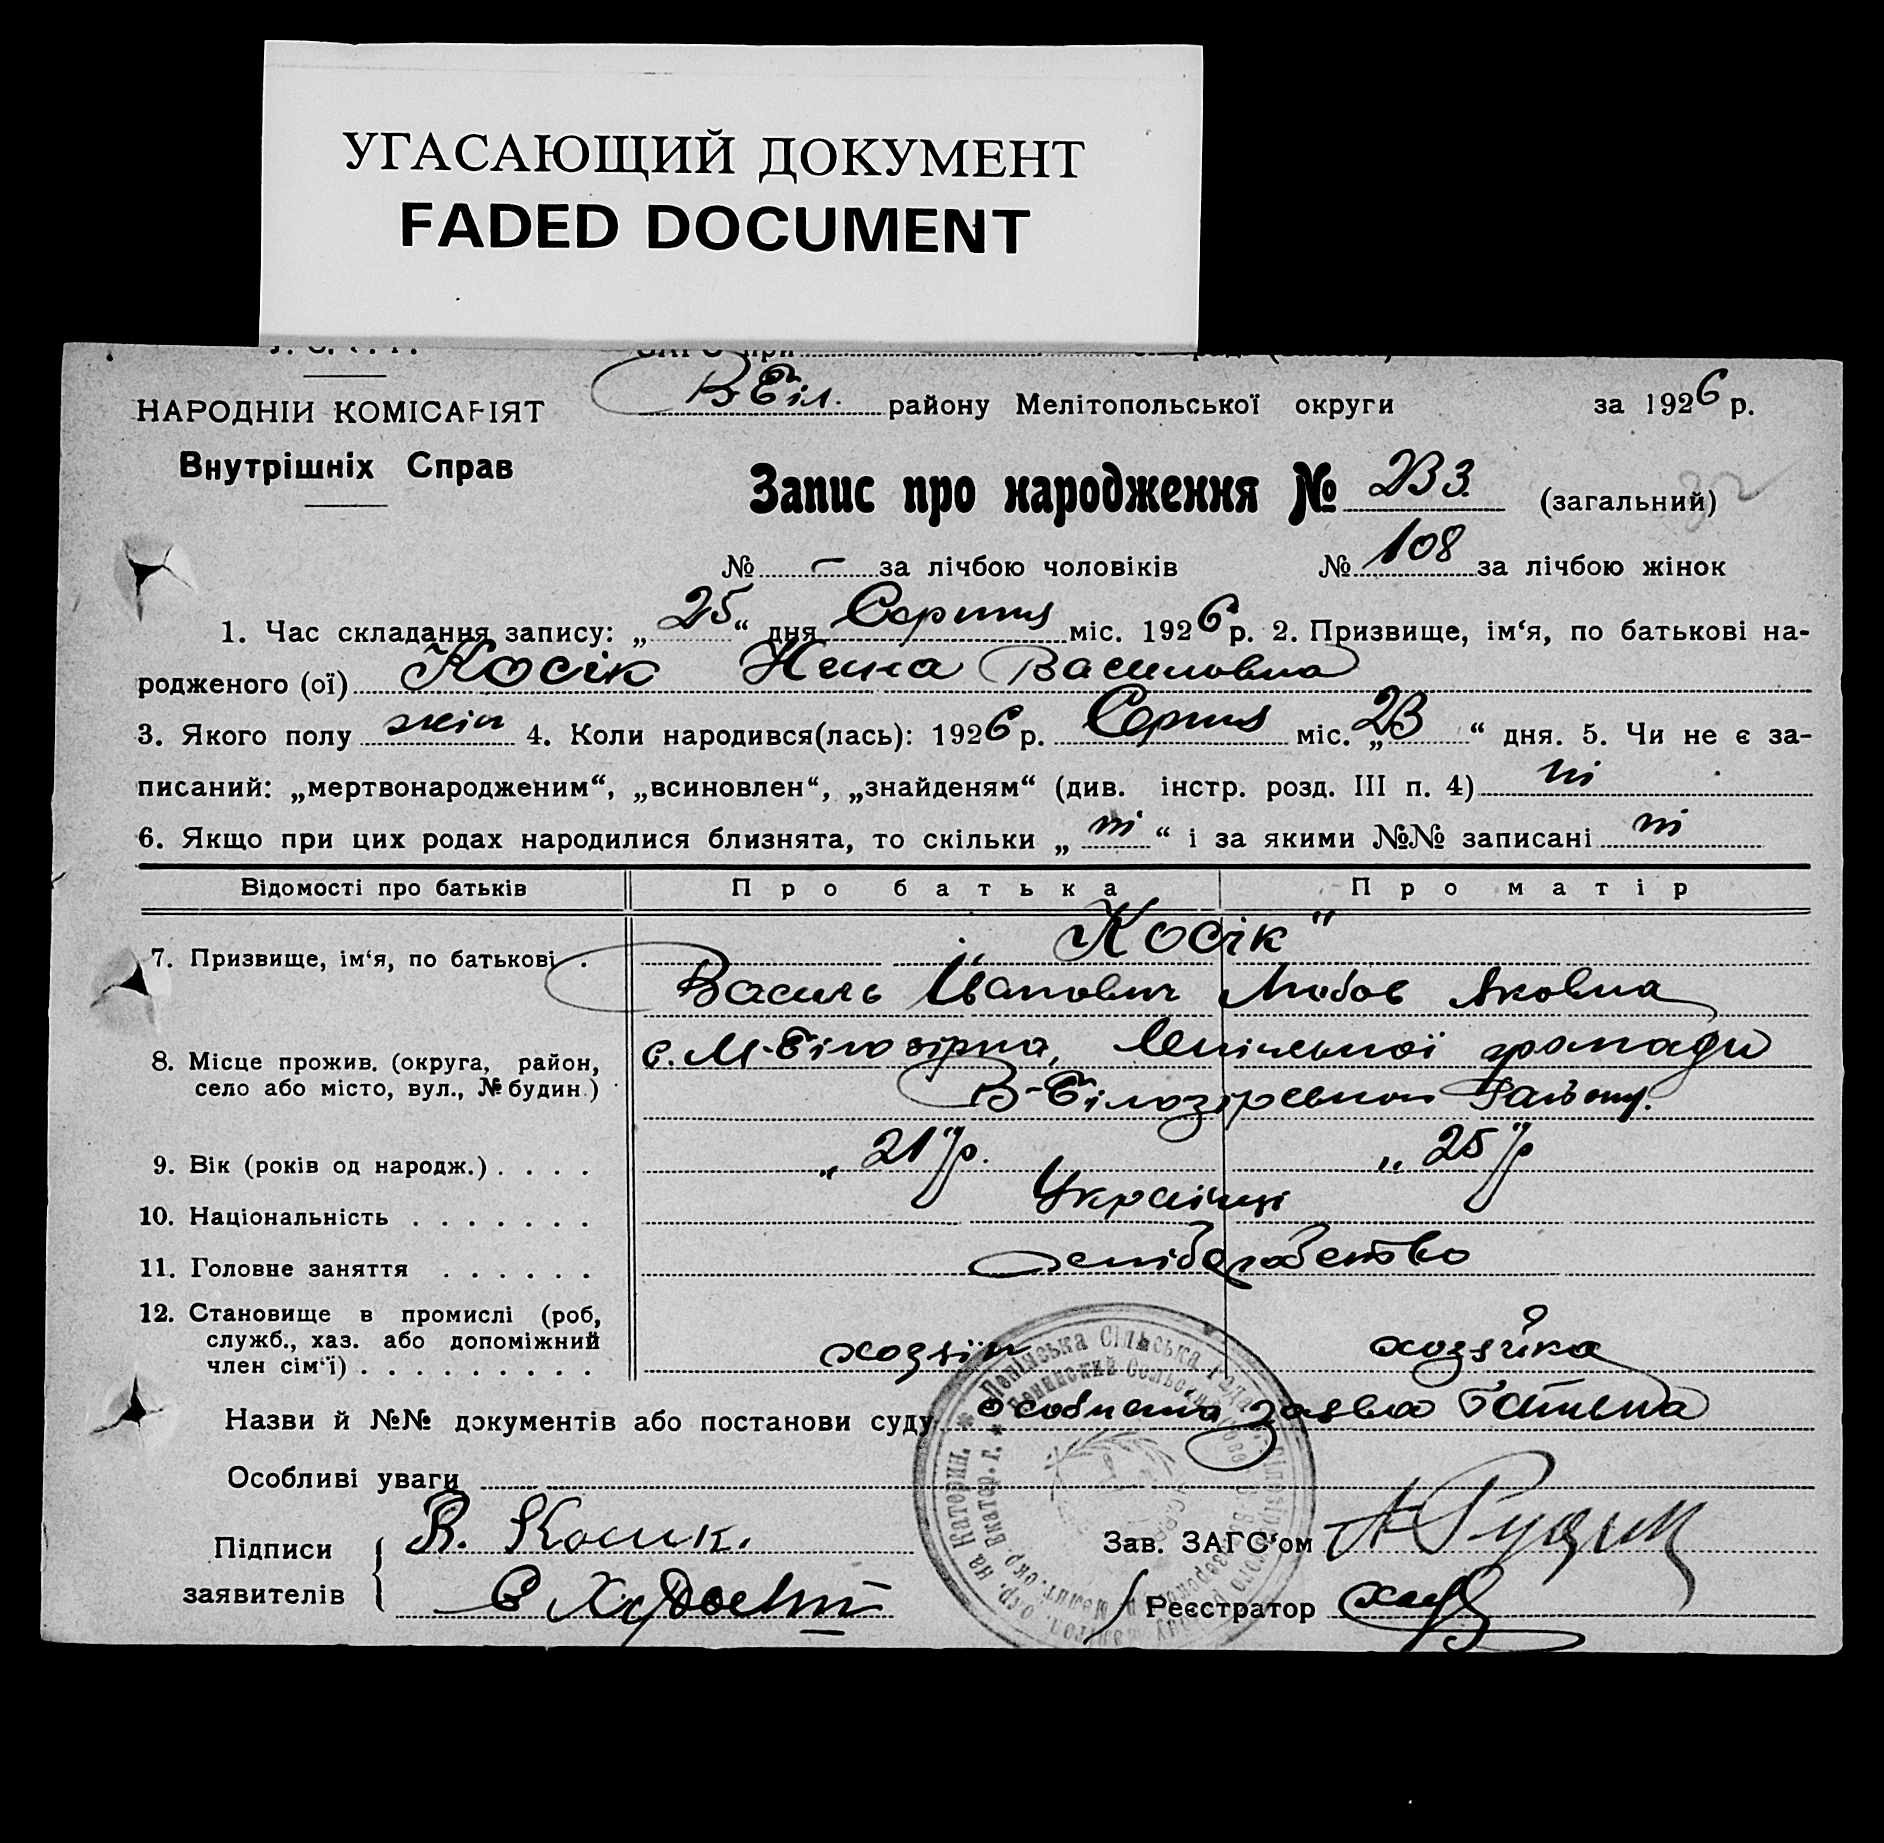 УГАСАЮЩИЙ ДОКУМЕНТ
FADED DOCUMENT
В Біл. району Мелітопольської округи за 1926 р.
НАРОДНІЙ КОМІСАРІЯТ
Внутрішніх Справ
Запис про народження № 233. (загальний)
32
№ – за лічбою чоловіків № 108 за лічбою жінок
1. Час складання запису: „25“ дня Серпня міс. 1926 р. 2. Призвище, ім‘я, по батькові на-
родженого (ої) Косік Нина Василовна
3. Якого полу жін 4. Коли народився(лась): 1926 р. Серпня міс. „23“ дня. 5. Чи не є за-
писаний: „мертвонародженим“, „всиновлен“, „знайденям“ (див. інстр. розд. III п. 4) ні
6. Якщо при цих родах народилися близнята, то скільки „ні“ і за якими №№ записані ні
Відомості про батьків Про батька Про матір
7. Призвище, ім‘я, по батькові . „Косік"
Василь Іванович Любов Яковна
8. Місце прожив. (округа, район, с. М-Білозірка, громади
село або місто, вул., № будин.) В-Білозірського Району.
9. Вік (років од народж.) . . . . „21" р. „25" р
10. Національність . . . . . . . Українці
11. Головне заняття . . . . . .
12. Становище в промислі (роб,
служб., хаз. або допоміжний хозяїн хозяйка
член сім‘ї) . . . . . . . . .
Назви й №№ документів або постанови суду Особиста заява Батька
Особливі уваги
Підписи В. Косик. Зав. ЗАГС‘ом
заявителів Реєстратор
Ленінська Сільська Рада
Ленинский Сельский